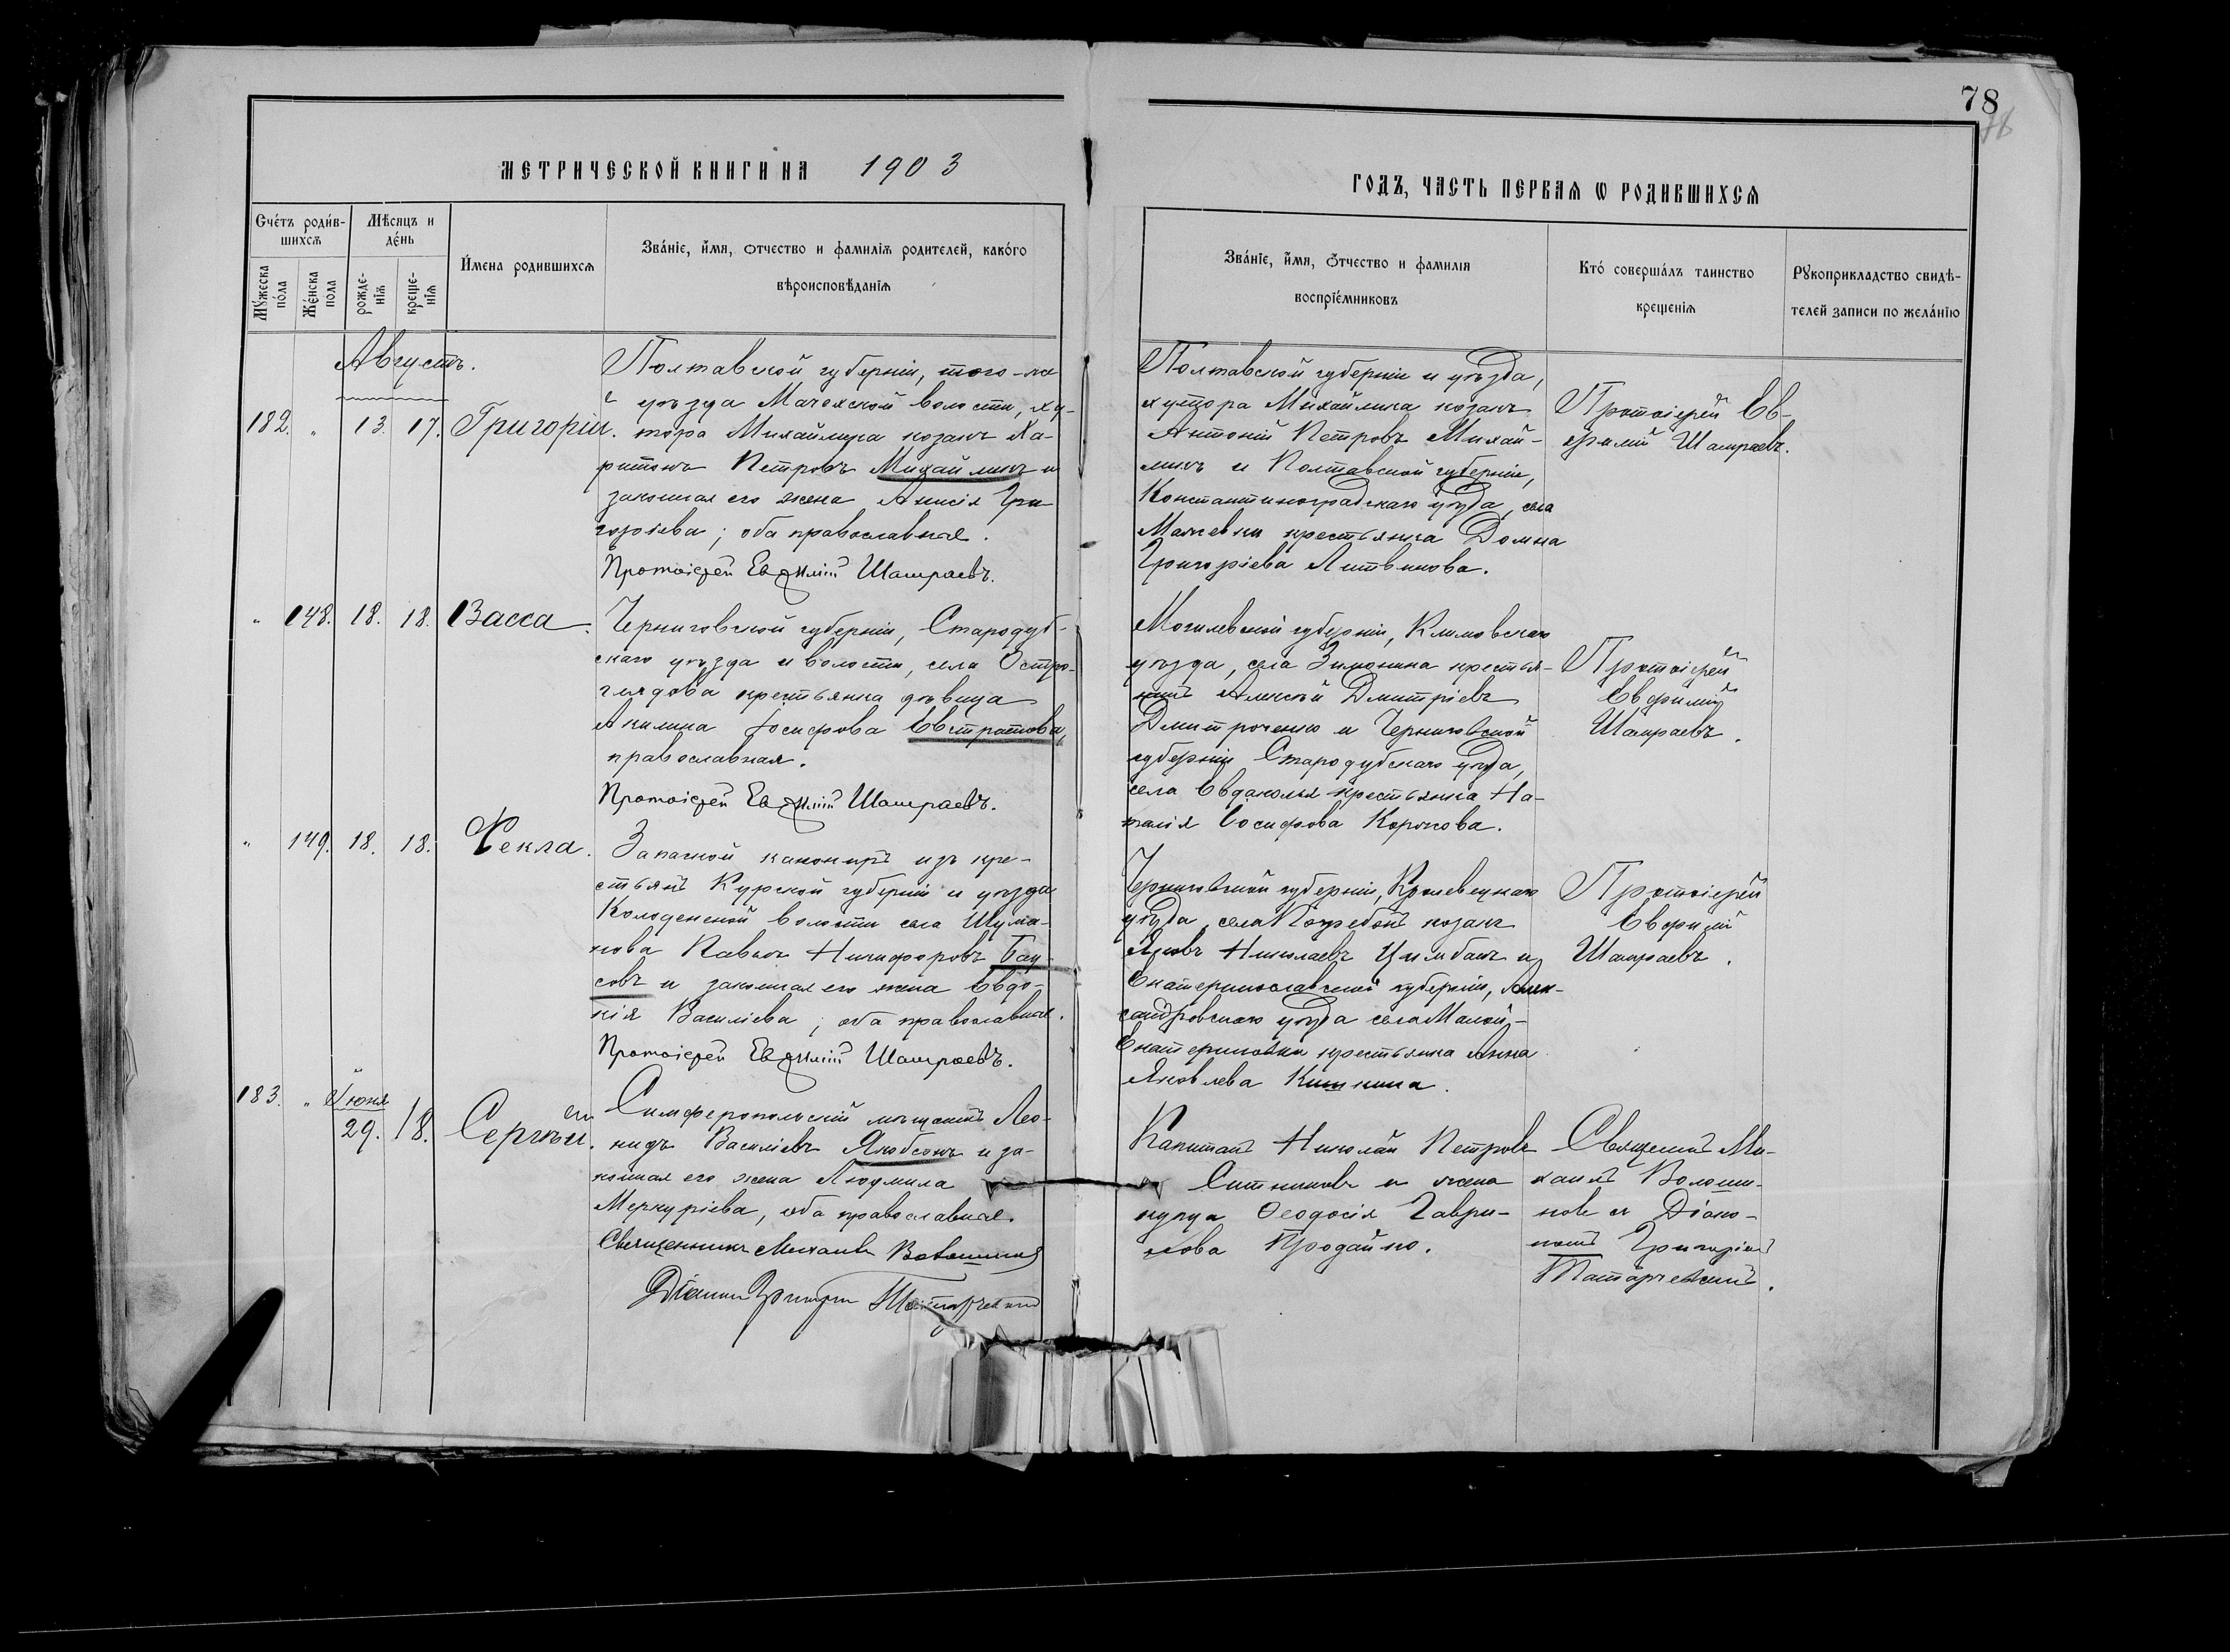 78
МЕТРИЧЕСКОЙ КНИГИ НА 1903
ГОДЪ, ЧАСТЬ ПЕРВАЯ Ѡ РОДИВШИХСЯ
Счéтъ роди́в-
шихсѧ
Мѣсяцъ и
де́нь
Му́жеска
по́ла
Же́нска
пола
рожде-
нїѧ
креще-
нїѧ
И́мена родившихсѧ
Зва́нїе, и́мѧ, ѻтчество и фамилїѧ родителей, како́го
вѣроисповѣ́данїѧ
Зва́нїе, и́мѧ, ѻ́тчество и фамилїѧ
воспрїе́мниковъ
Кто́ соверша́лъ таинство
крещенїѧ
Рꙋкоприкладство свидѣ-
телей записи по жела́нїю
Августъ.
182. " 13. 17. Григорій.
Полтавской губерніи, того-же
уѣзда Мачехской волости, ху-
тора Михайлика козакъ Ха-
ритонъ Петровъ Михайликъ и
законная его жена Анисія Гри-
горіева; оба православные.
Протоіерей Евѳимій Шамраевъ.
Полтавской губерніи и уѣзда,
хутора Михайлика козакъ
Антоній Петровъ Михай-
ликъ и Полтавской губерніи,
Константиноградскаго уѣзда, села
крестьянка Домна
Григоріева Литвинова.
Протоіерей Ев-
фимій Шамраевъ.
" 148. 18. 18. Васса.
Черниговской губерніи, Стародуб-
скаго уѣзда и волости, села Остро-
глядова крестьянка дѣвица
Акилина Іосифова Евстратова,
православная.
Протоіерей Евѳимій Шамраевъ.
Могилевской губерніи, Климовскаго
уѣзда, села Зимонина крестья-
нинъ Алексѣй Дмитріевъ
Дмитроченко и Черниговской
губерніи Стародубскаго уѣзда,
села крестьянка На-
талія Іосифова
Протоіерей
Евфимій
Шамраевъ.
" 149. 18. 18. Ѳекла.
Запасной канониръ изъ кре-
стьянъ Курской губерніи и уѣзда
Колоденской волости села Шума-
кова Павелъ Никифоровъ Бау-
совъ и законная его жена Евдо-
кія Василіева; оба православные.
Протоіерей Евѳимій Шамраевъ.
Черниговской губерніи, Кролевецкаго
уѣзда, села Погребокъ козакъ
Яковъ Николаевъ Цимбалъ и
Екатеринославской губерніи, Алек-
сандровскаго уѣзда села Малой-
Екатериновки крестьянка Анна
Яковлева
Протоіерей
Евфимій
Шамраевъ.
183. " Іюня
29. 18. Сергѣй.
Симферопольскій мѣщанинъ Лео-
нидъ Василіевъ Якобсонъ и за-
конная его жена Людмила
Меркуріева, оба православные.
Священникъ Михаилъ Волошинов
Діаконъ Григорій Татарчевскій
Капитанъ Николай Петровъ
Ситниковъ и жена
купца Ѳеодосія Гаври-
лова Продайко.
Священникъ Ми-
хаилъ Волоши-
новъ съ Діако-
номъ Григоріемъ
Татарчевскимъ.